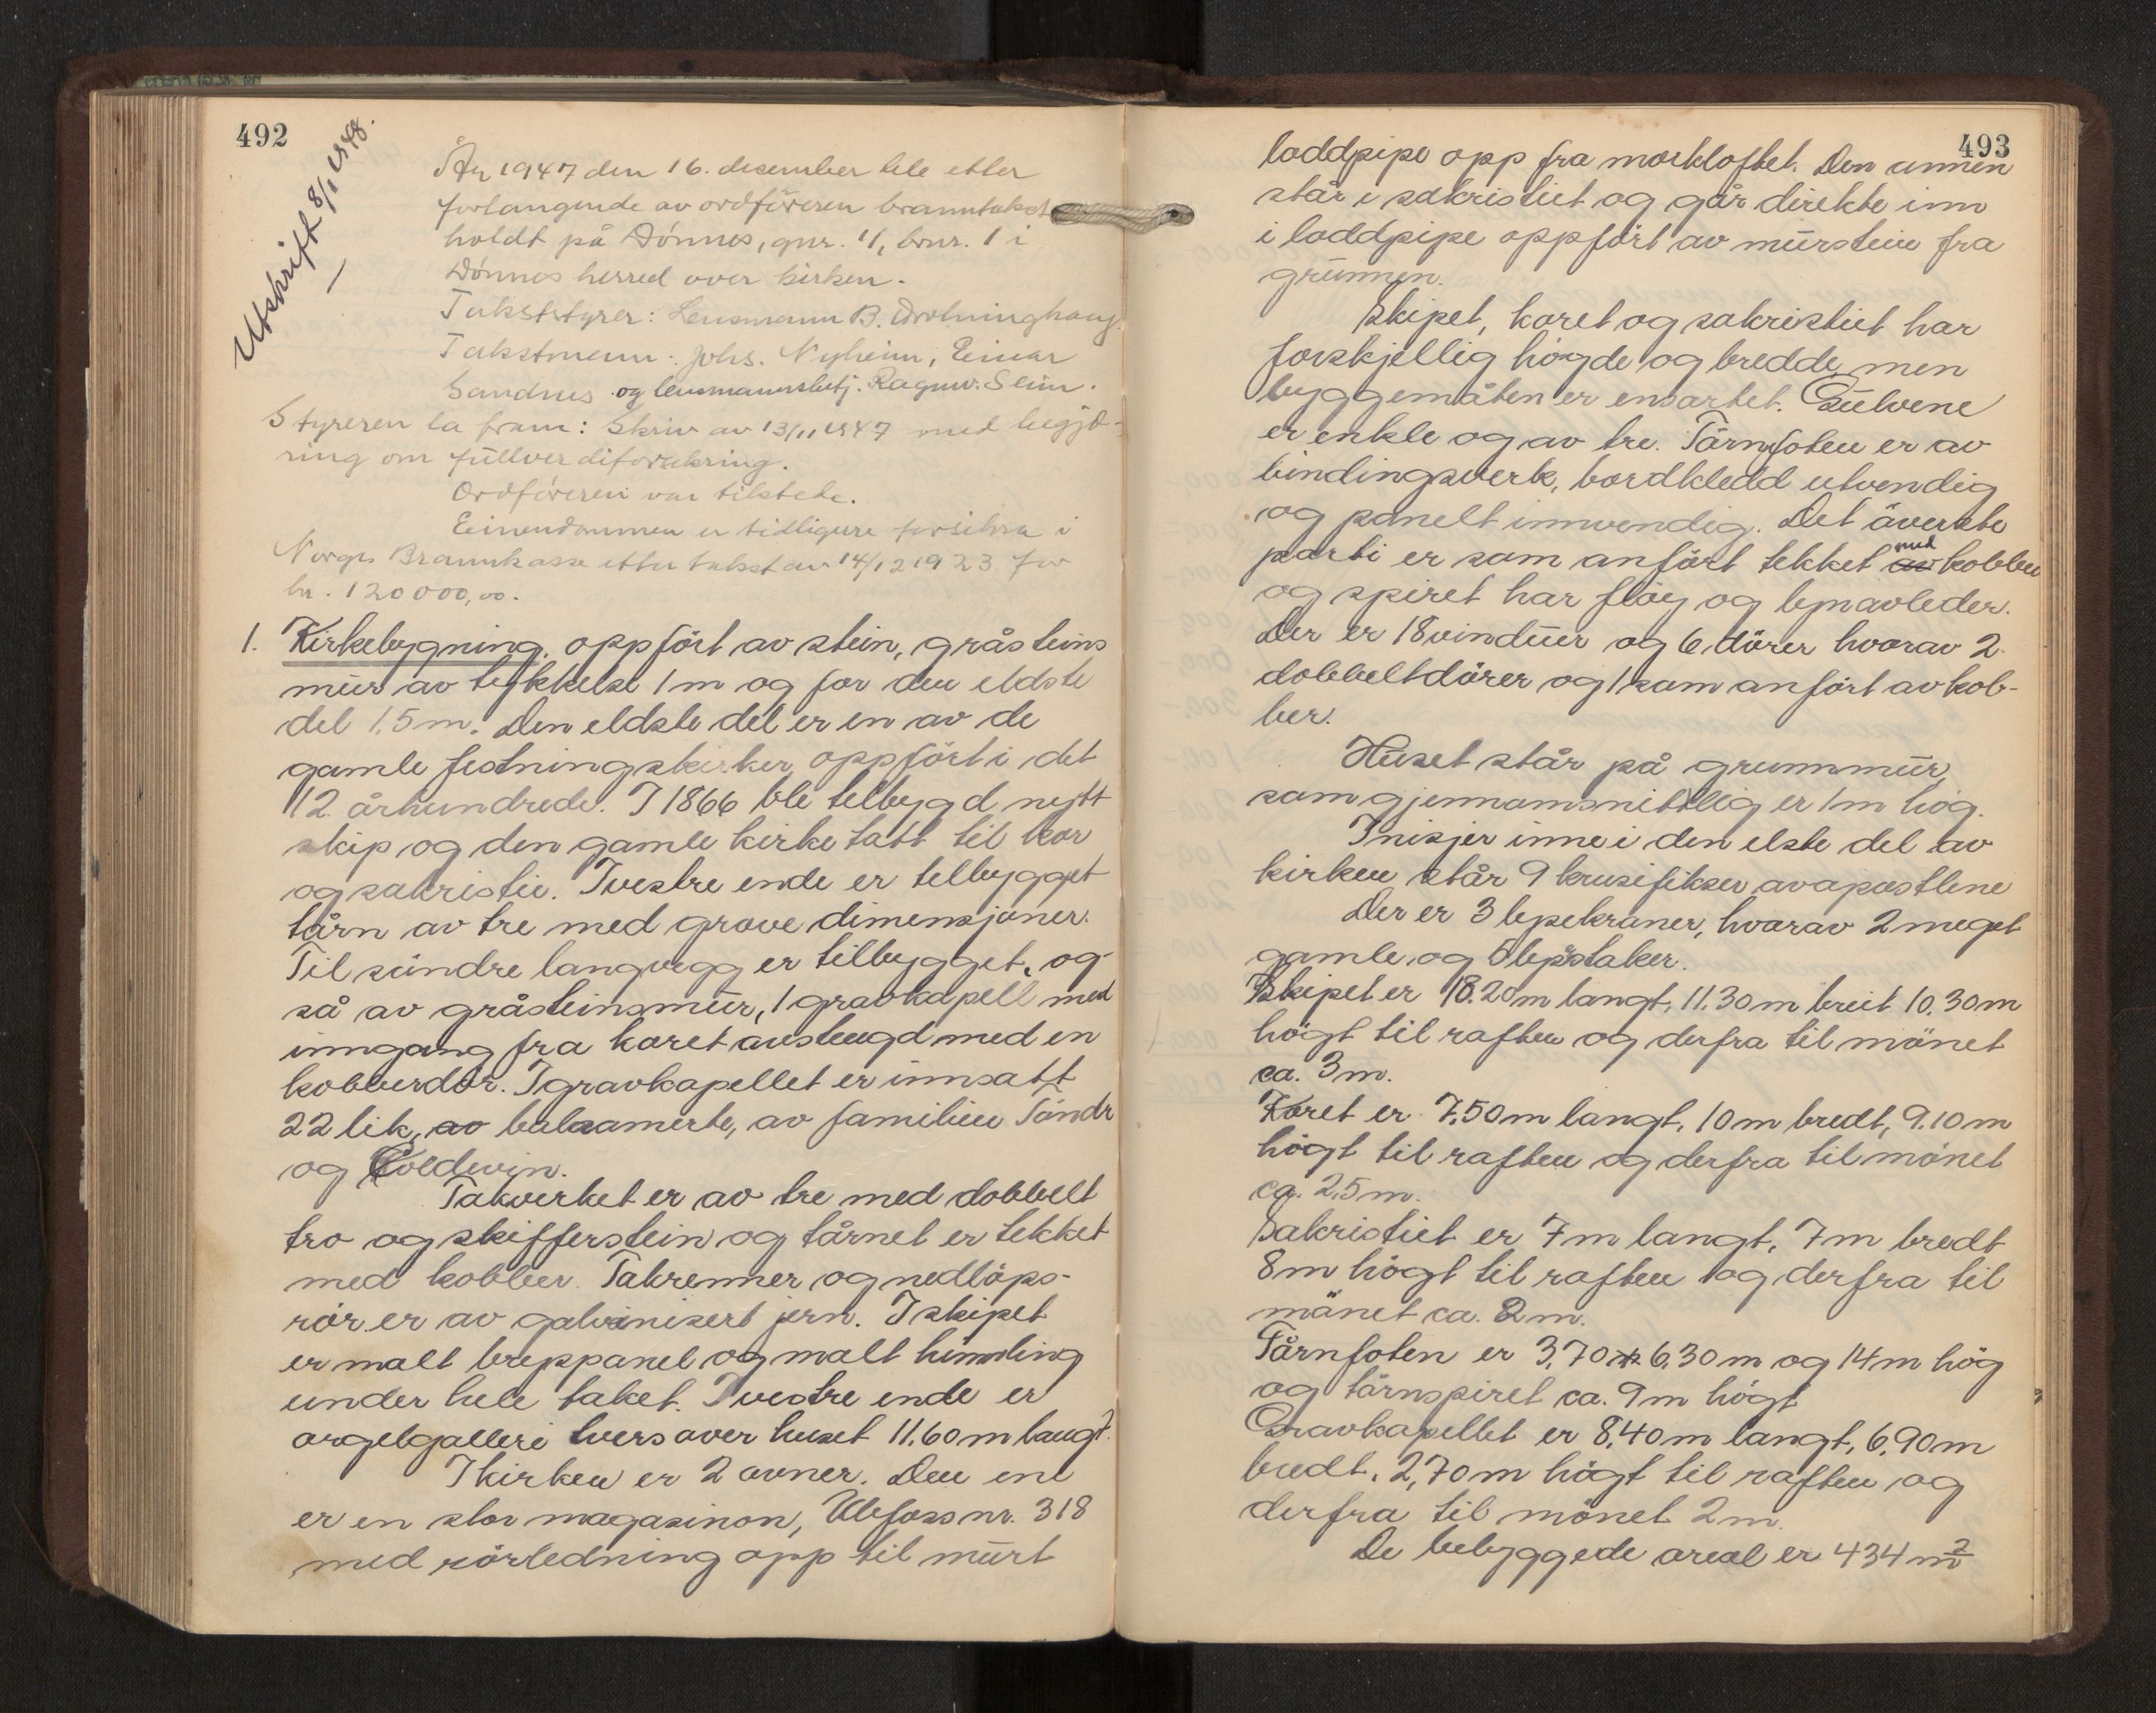 492
Utskrift 8/1 1948.
År 1947 den 16. desember ble etter
forlangende av ordföreren branntakst
holdt på Dönnes, gnr. 11, bnr. 1 i
Dönnes herred over kirken.
Takststyrer: Lensmann B. Drotninghaug.
Takstmenn: Johs. Nyheim, Einar
Sandnes og lensmannsbetj. Ragnv. Seim.
Styreren la fram: Skriv av 13/11 1947 med begjæ-
ring om fullverdiforsikring.
Ordföreren var tilstede.
Eiendommen er tidligere forsikra i
Norges Brannkasse etter takst av 14/12 1923 for
kr. 120000,00.
1. Kirkebygning, oppfört av stein, gråsteins
mur av tykkelse 1 m og for den eldste
del 1,5 m. Den eldste del er en av de
gamle festningskirker oppfört i det
12. århundrede. I 1866 ble tilbygd nytt
skip og den gamle kirke tatt til kor
og sakristie. I vestre ende er tilbygget
tårn av tre med grove dimensjoner.
Til söndre langvegg er tilbygget, og-
så av gråsteinsmur, 1 gravkapell med
inngang fra koret avstengd med en
kobberdör. I gravkapellet er innsatt
22 lik, av balsamerte, av familien Töndr
og Coldevin.
Takverket er av tre med dobbelt
tro og skifferstein og tårnet er tekket
med kobber. Takrenner og nedlöps-
rör er av galvinisert jern. I skipet
er malt breppanel og malt himling
under hele taket. I vestre ende er
orgelgalleri tvers over huset 11.60 m langt.
I kirken er 2 ovner. Den ene
er en stor magasinon, Ulefoss nr. 318
med rörledning opp til murt
493
loddpipe opp fra mörkloftet. Den annen
står i sakristiet og går direkte inn
i loddpipe oppfört av murstein fra
grunnen.
Skipet, koret og sakristiet har
forskjellig högde og bredde, men
byggemåten er ensartet. Gulvene
er enkle og av tre. Tårnfoten er av
bindingsverk, bordkledd utvendig
og panelt innvendig. Det överste
parti er som anfört tekket av med kobber
og spiret har flöy og lynavleder.
Der er 18 vinduer og 6 dörer hvorav 2
dobbeltdörer og 1 som anfört av kob-
ber.
Huset står på grunnmur,
som gjennomsnittlig er 1 m hög.
I nisjer inne i den elste del av
kirken står 9 krusifikser av apostlene
Der er 3 lysekroner, hvorav 2 meget
gamle, og 5 lysstaker.
Skipet er 18.20 m langt, 11.30 m breit 10.30 m
högt til raften og derfra til mönet
ca. 3 m.
Koret er 7.50 m langt, 10 m bredt, 9.10 m
högt til raften og derfra til mönet
ca. 2,5 m.
Sakristiet er 7 m langt, 7 m bredt
8 m högt til raften og derfra til
mönet ca. 2 m.
Tårnfoten er 3,70 x 6,30 m og 14 m hög
og tårnspiret ca. 9 m högt
Gravkapellet er 8,40 m langt, 6,90 m
bredt, 2,70 m högt til raften og
derfra til mönet 2 m.
De bebyggede areal er 434 m2